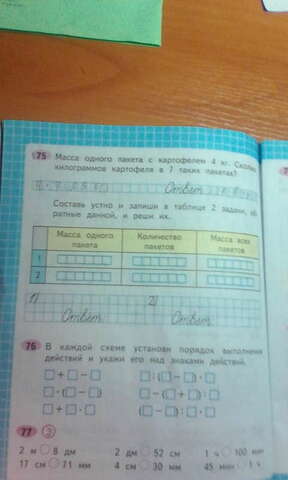 75 Масса одного пакета с картофелем 4 кг. Сколько
килограммов картофеля в 7 таких пакетах?
Ответ
Составь устно и запиши в таблице 2 задачи, об-
ратные данной, и реши их.
Масса одного пакета Количество пакетов Масса всех пакетов
1
2
1) 2)
Ответ Ответ
76 В каждой схеме установи порядок выполнения
действий и укажи его над знаками действий.
□ + □ − □ □ : (□ − □) · □
□ · (□ − □) □ − (□ + □) : □
□ + □ · □ (□ − □) : □ · □
77 3
2 м ○ 8 дм 2 дм ○ 52 см 1 ч ○ 100 мин
17 см ○ 71 мм 4 см ○ 30 мм 45 мин ○ 1 ч